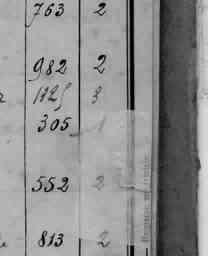 763 2
982 2
1125 3
305 1
552 2
813 2